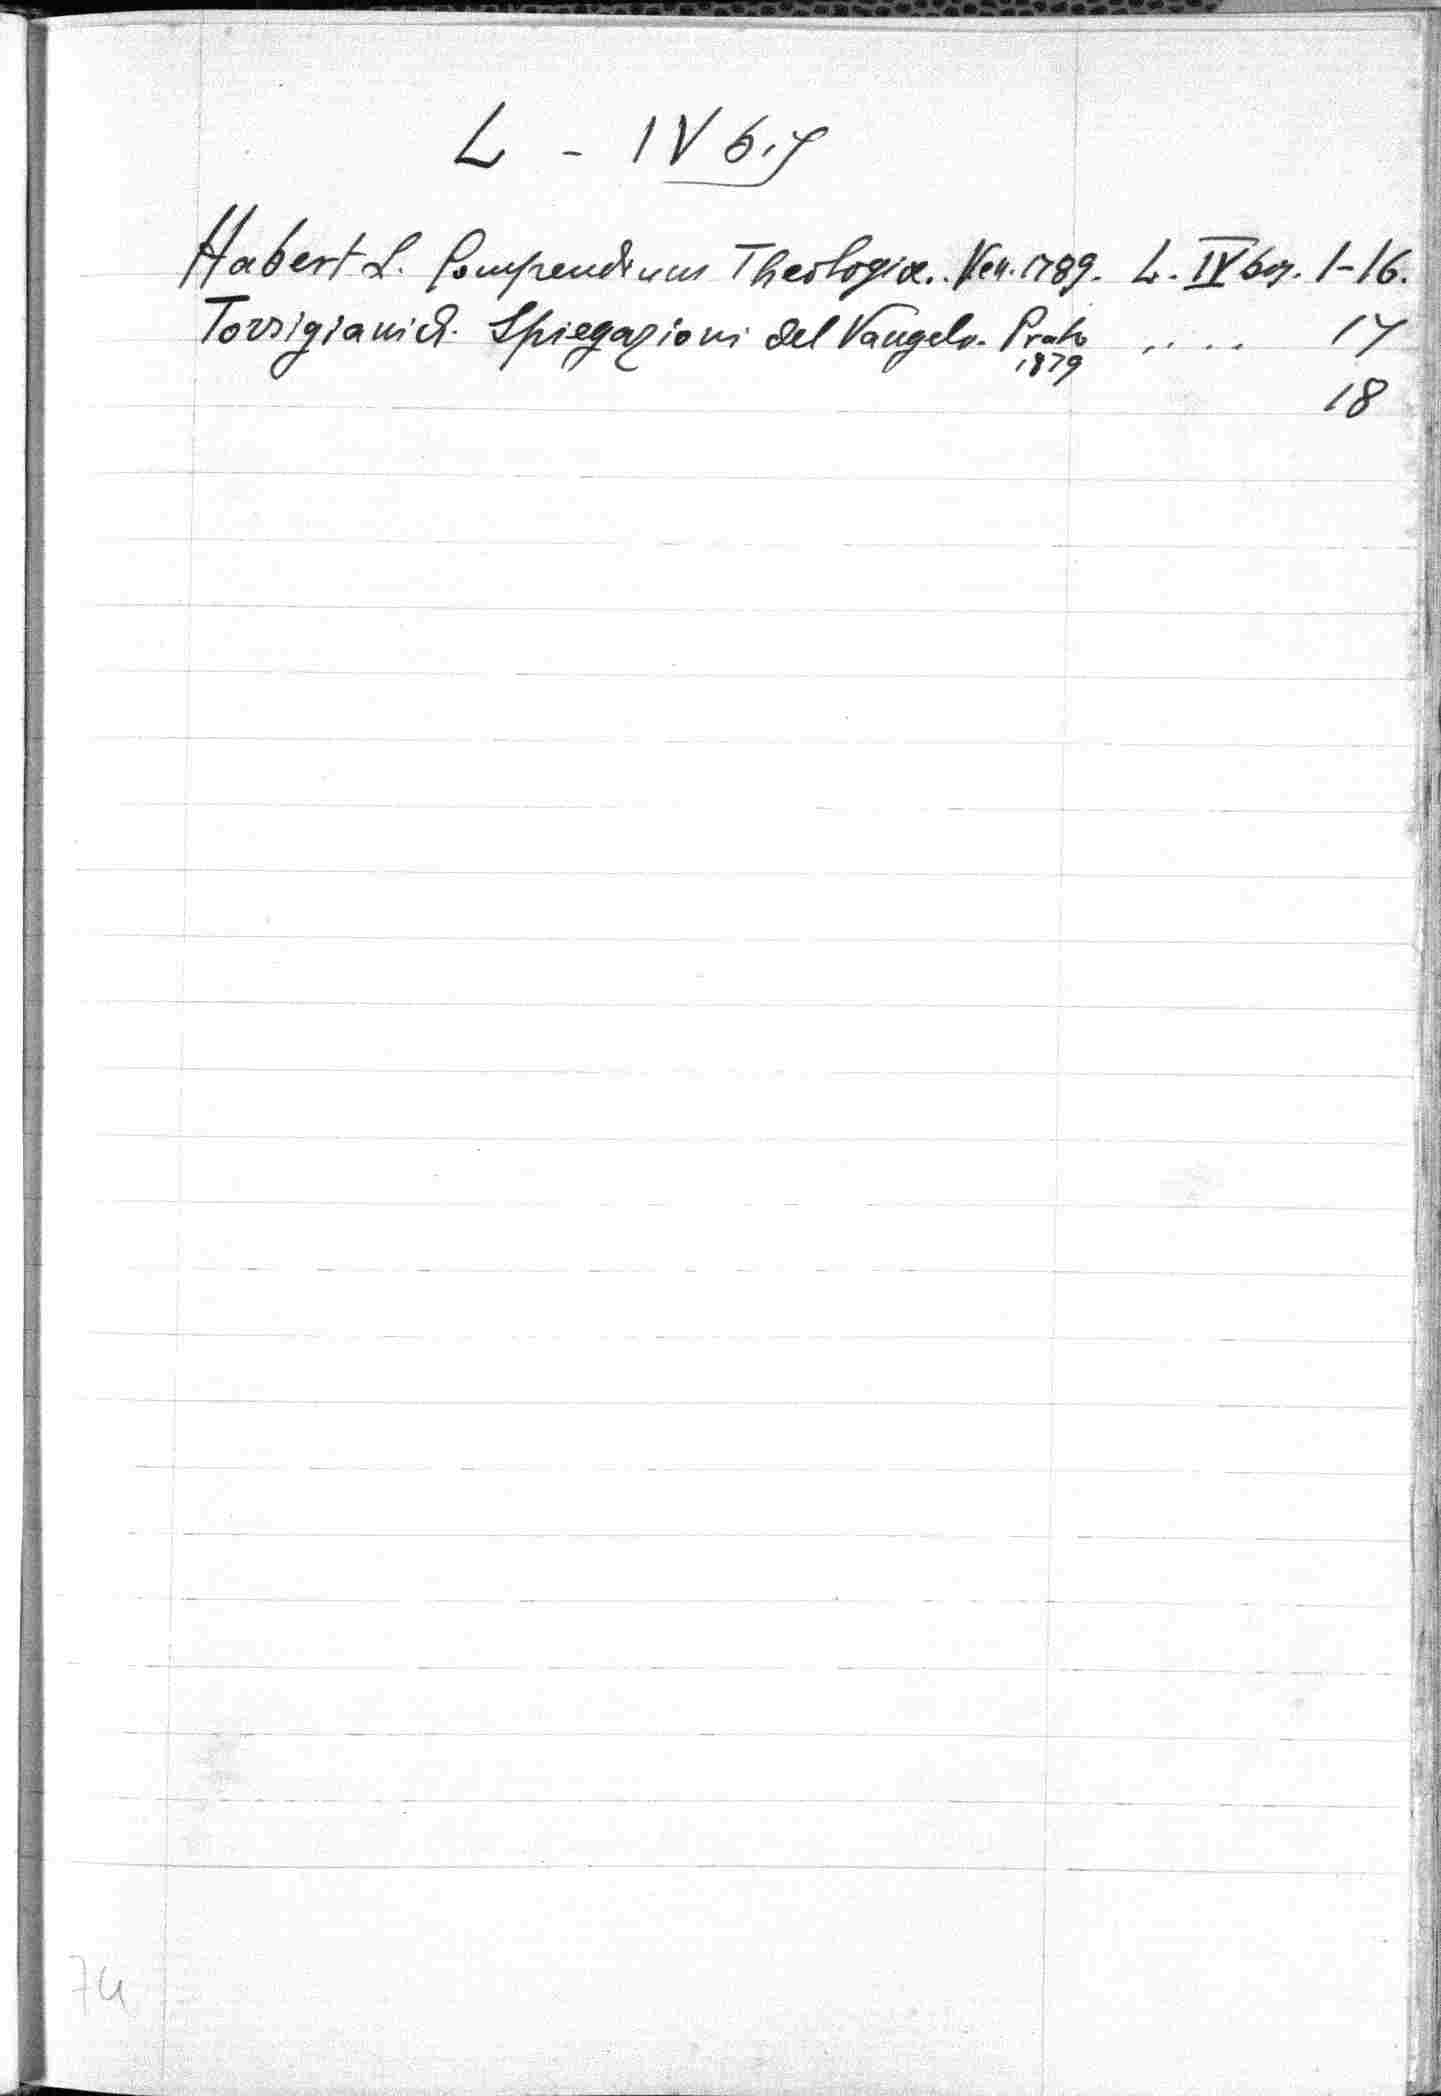 L - IV bis
Habert L. Compendium Theologiæ. Ven. 1789. L. IV bis. 1-16.
Torrigiani d. Spiegazioni del Vangelo. Prato 1879 .. .. 17
18
74